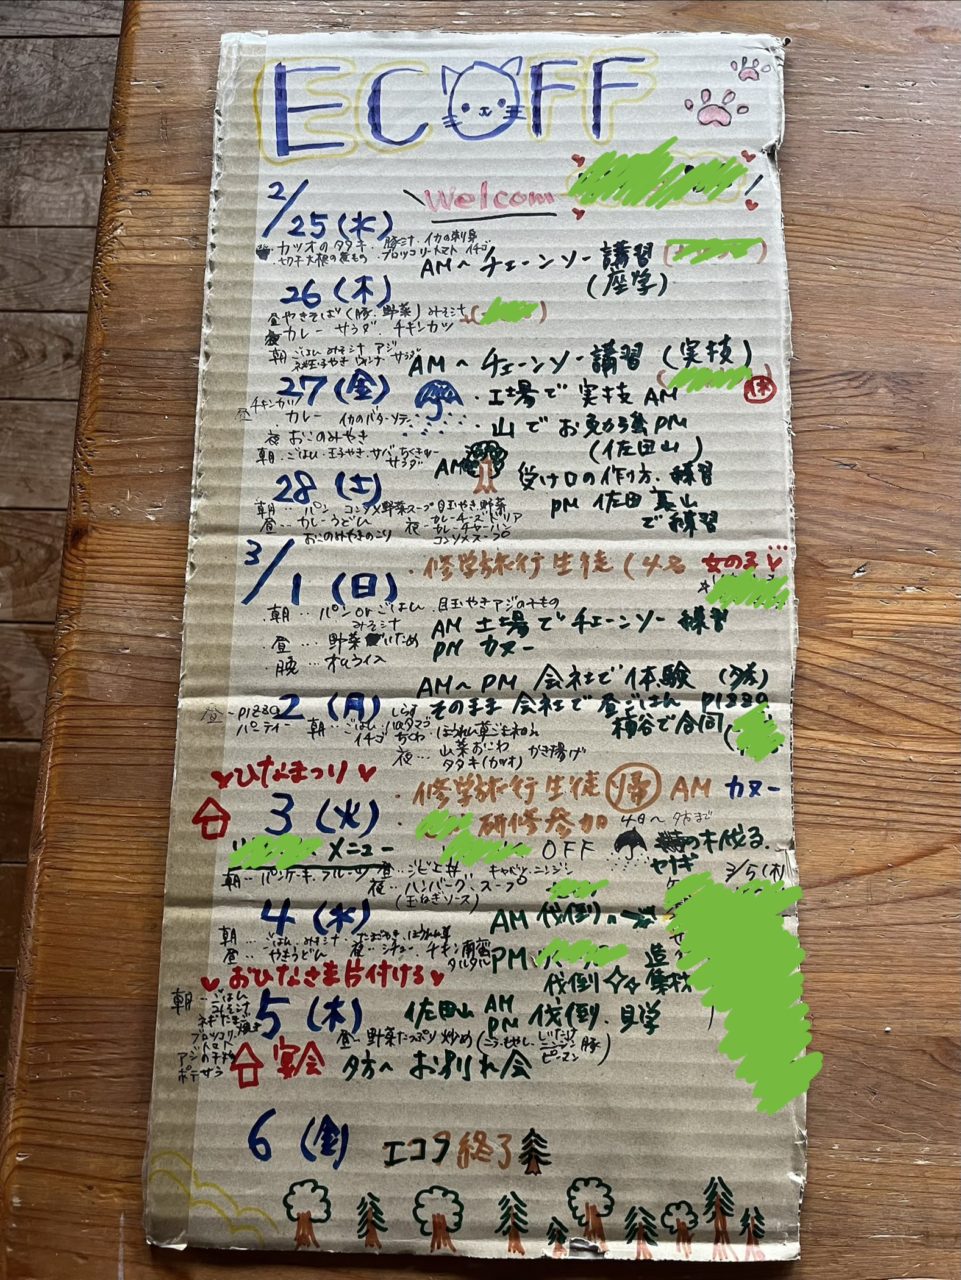 ECOFF
Welcom
2/25(水)
カツオのタタキ・豚汁・イカの刺身
切干大根の煮もの ブロッコリートマト イチゴ
AM〜チェーンソー講習
(座学)
26(木)
昼 やきそば(豚、野菜) みそ汁
夜 カレー サラダ チキンカツ
朝 ごはん みそ汁 アジ
ウィンナー サラダ
AM〜チェーンソー講習(実技)
27(金)
・工場で実技 AM
休
昼 チキンカツ
カレー イカのバターソテー
・山でお勉強PM
(佐田山)
夜 おこのみやき
朝 ごはん・玉子やき・サバ・ちくきゅー
サラダ
AM 受け口の作り方、練習
28(土)
PM 佐田裏山
で練習
朝… パン コンソメ野菜スープ 目玉やき 野菜
昼… カレーうどん
おこのみやきのこり
夜… カレーチーズドリア
カレーチャーハン
コンソメスープ
3/1(日)
・修学旅行生徒(4名 女の子
朝… パンorごはん 目玉やき アジのすもの
みそ汁
AM 土場でチェーンソー練習
昼… 野菜いため
PM カヌー
晩… オムライス
AM〜PM 会社で体験
2(月)
そのまま会社で昼ごはん PIZZA
昼…PIZZA
パーティー
朝…ごはん しらす
イチゴ ちくわ
夜… 山菜おこわ かき揚げ
タタキ(カツオ)
ひなまつり
・修学旅行生徒 帰 AM カヌー
3(火)
研修参加 4日〜夕方まで
OFF
の木伐る.
ヤナギ
3/5(木)
メニュー
朝… パンケーキ、フルーツ 昼… ジビエ丼 キャベツ、ニンジン
夜… ハンバーグ、スープ
(玉ねぎソース)
4(水)
AM 伐倒
朝… ごはん みそ汁
昼… やきうどん 夜… シチュー チキン南蛮
タルタル
PM
造
伐倒
おひなさま片付ける
5(木)
佐田山 AM
PM 伐倒、見学
朝…ごはん
みそ汁
ネギたま焼き
ブロッコリー
トマト
アジの
ポテサラ
昼… 野菜たっぷり炒め(ニラ、もやし、しいたけ
ニンジン 豚
ピーマン)
宴会 夕方〜お別れ会
6(金)
エコフ終了